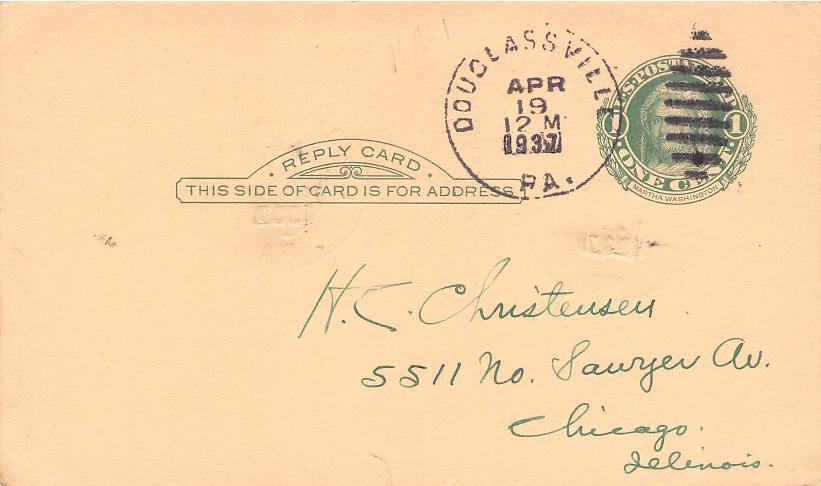 DOUGLASSVILLE
APR
19
12 M
1937
PA.
U.S. POSTAGE
1 1
ONE CENT
MARTHA WASHINGTON
REPLY CARD
THIS SIDE OF CARD IS FOR ADDRESS
H. C. Christensen
5511 No. Sawyer Av.
Chicago.
Illinois.